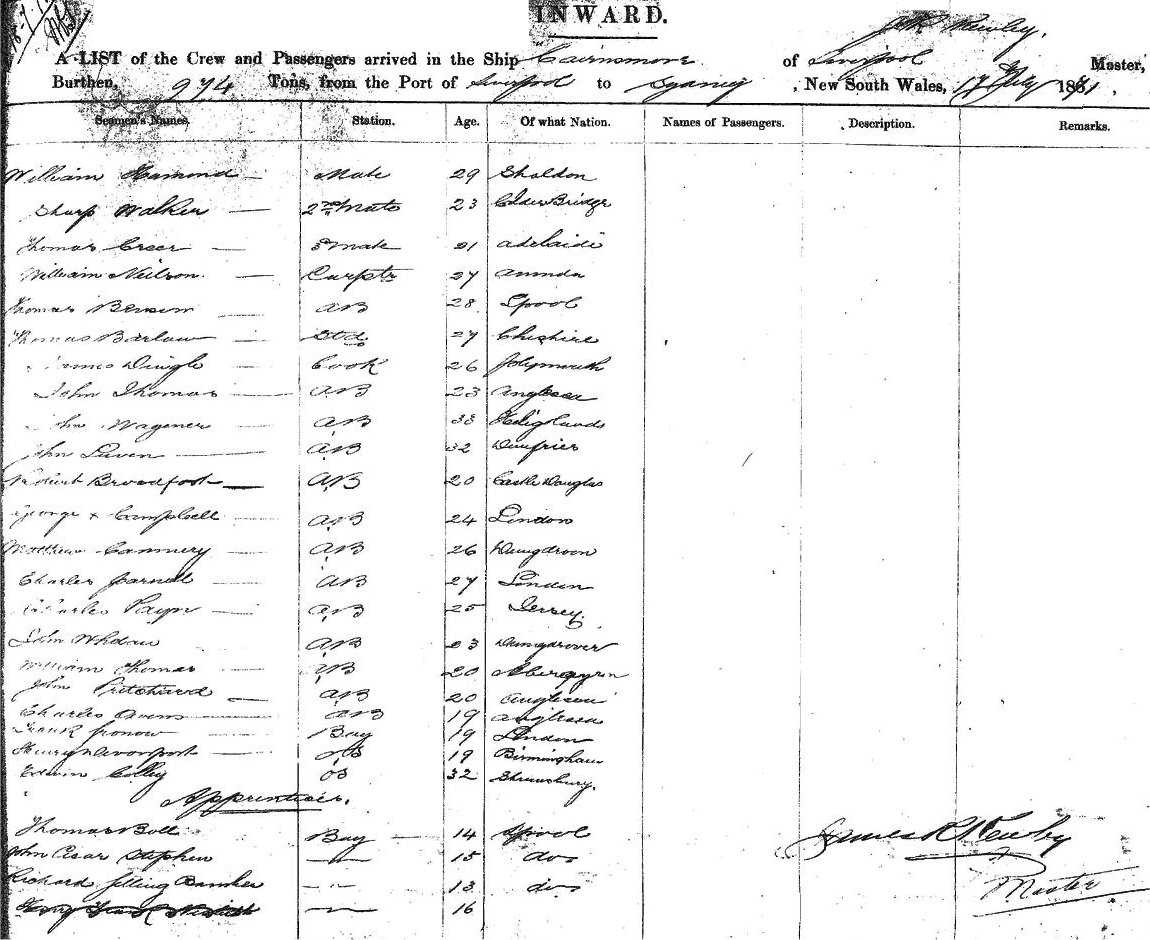 INWARD.
A LIST of the Crew and Passengers arrived in the Ship Cairnsmore of Liverpool Master,
Burthen, 974 Tons, from the Port of Liverpool to Sydney, New South Wales, 17 July 1871.
Seamen's Names. Station. Age. Of what Nation. Names of Passengers. Description. Remarks.
William Hamond — Mate 29 Sholdon
Sharp Walker — 2nd Mate 23 Calder Bridge
Thomas Creer — 3 Mate 21 Adelaide
William Neilson — Carptr 27
Thomas Benson — AB 28 Lpool
Thomas Barlow — Std 27 Cheshire
James Dingle — Cook 26 Plymouth
John Thomas — AB 23 Anglesea
John Wagener — AB 33 Heligland
John Laven — AB 32 Dumfries
Robert Broadfoot — AB 20 Castle Douglas
George Campbell — AB 24 London
Matthew Cannery — AB 26
Charles Parnell — AB 27 London
Charles Payn — AB 25 Jersey
John AB 23
William Thomas — AB 20
John Pritchard — AB 20 Anglesea
Charles Owens — AB 19 Anglesea
Frank Gronow — Boy 19 London
Henry Davenport — OS 19 Birmingham
Edwin Colley OS 32 Shrewsbury.
Apprentices.
Thomas Boll Boy — 14 Lpool
John Cesar Stephen — 15 do
Richard Banker — 13 do
— 16
James R Kewley
Master